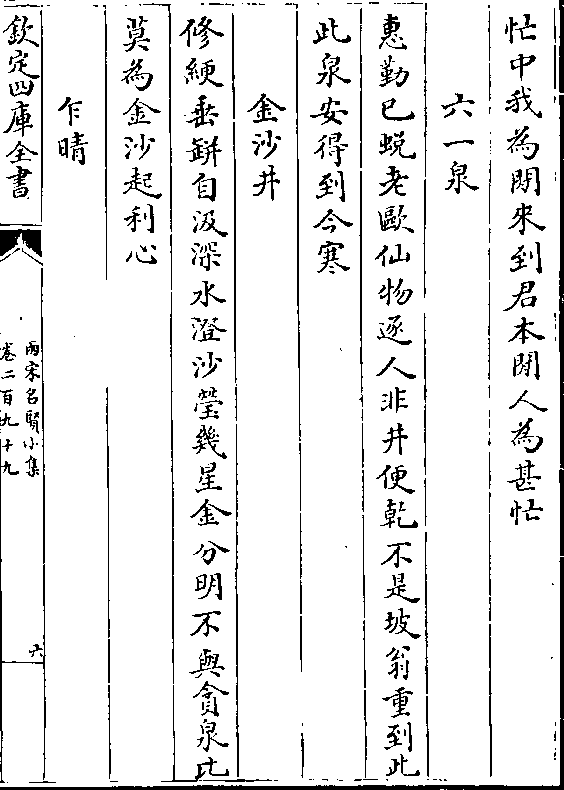 忙中我為閒來到君本閒人為甚忙
六一泉
惠勤已蛻老歐仙物逐人非井便乾不是坡翁重到此
此泉安得到今寒
金沙井
修綆垂缾自汲深水澄沙瑩幾星金分明不與貪泉比
莫為金沙起利心
乍晴
欽定四庫全書
兩宋名賢小集
卷二百九十九
六